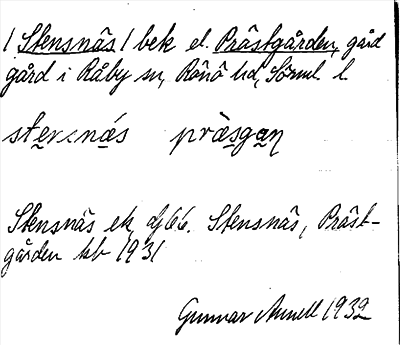 / Stensnäs / bek el. Prästgården, gård
gård i Råby sn, Rönö hd, Sörml l
stensnäs präsgan
Stensnäs ek dj 66. Stensnäs, Präst-
gården kb 1931
Gunnar 1932